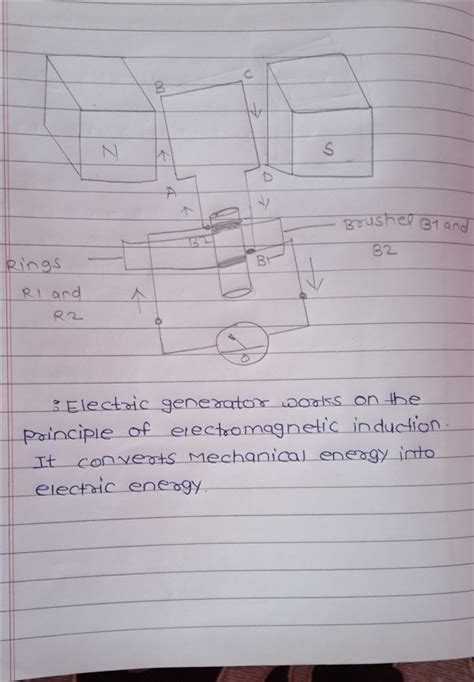 B
C
N
S
A
D
Boushel B1 and
B2
B2
B1
Rings
R1 and
R2
0
: Electric generator works on the
principle of electromagnetic induction.
It converts Mechanical energy into
electric energy.